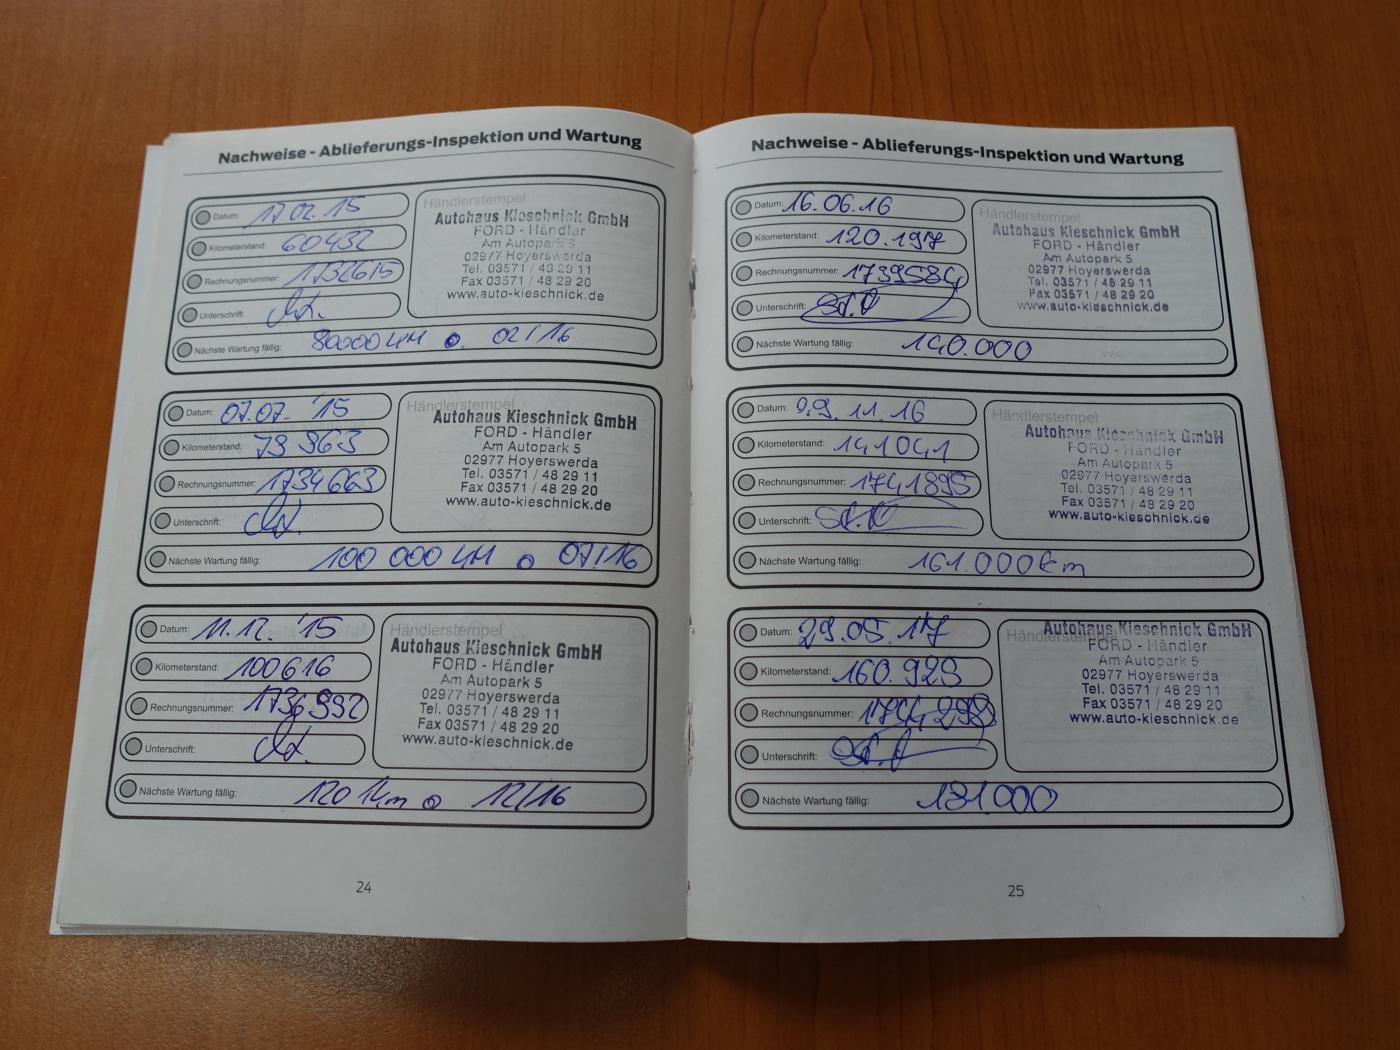 Nachweise - Ablieferungs-Inspektion und Wartung
Datum: 17.02.15
Kilometerstand: 60432
Rechnungsnummer: 1732615
Unterschrift:
Nächste Wartung fällig: 80000 KM o. 02/16
Händlerstempel
Autohaus Kieschnick GmbH
FORD - Händler
Am Autopark 5
02977 Hoyerswerda
Tel. 03571 / 48 29 11
Fax 03571 / 48 29 20
www.auto-kieschnick.de
Datum: 07.07. '15
Kilometerstand: 79 963
Rechnungsnummer: 1734663
Unterschrift:
Nächste Wartung fällig: 100 000 KM o 07/16
Händlerstempel
Autohaus Kieschnick GmbH
FORD - Händler
Am Autopark 5
02977 Hoyerswerda
Tel. 03571 / 48 29 11
Fax 03571 / 48 29 20
www.auto-kieschnick.de
Datum: 11.12. '15
Kilometerstand: 100616
Rechnungsnummer: 1736992
Unterschrift:
Nächste Wartung fällig: 120 tkm o 12/16
Händlerstempel
Autohaus Kieschnick GmbH
FORD - Händler
Am Autopark 5
02977 Hoyerswerda
Tel. 03571 / 48 29 11
Fax 03571 / 48 29 20
www.auto-kieschnick.de
24
Nachweise - Ablieferungs-Inspektion und Wartung
Datum: 16.06.16
Kilometerstand: 120.197
Rechnungsnummer: 1739584
Unterschrift:
Nächste Wartung fällig: 140.000
Händlerstempel
Autohaus Kieschnick GmbH
FORD - Händler
Am Autopark 5
02977 Hoyerswerda
Tel. 03571 / 48 29 11
Fax 03571 / 48 29 20
www.auto-kieschnick.de
Datum: 11.16
Kilometerstand: 141041
Rechnungsnummer: 1741895
Unterschrift:
Nächste Wartung fällig: 161.000km
Händlerstempel
Autohaus Kieschnick GmbH
FORD - Händler
Am Autopark 5
02977 Hoyerswerda
Tel. 03571 / 48 29 11
Fax 03571 / 48 29 20
www.auto-kieschnick.de
Datum: 29.05.17
Kilometerstand: 160.929
Rechnungsnummer: 1744298
Unterschrift:
Nächste Wartung fällig: 181.000
Händlerstempel
Autohaus Kieschnick GmbH
FORD - Händler
Am Autopark 5
02977 Hoyerswerda
Tel. 03571 / 48 29 11
Fax 03571 / 48 29 20
www.auto-kieschnick.de
25